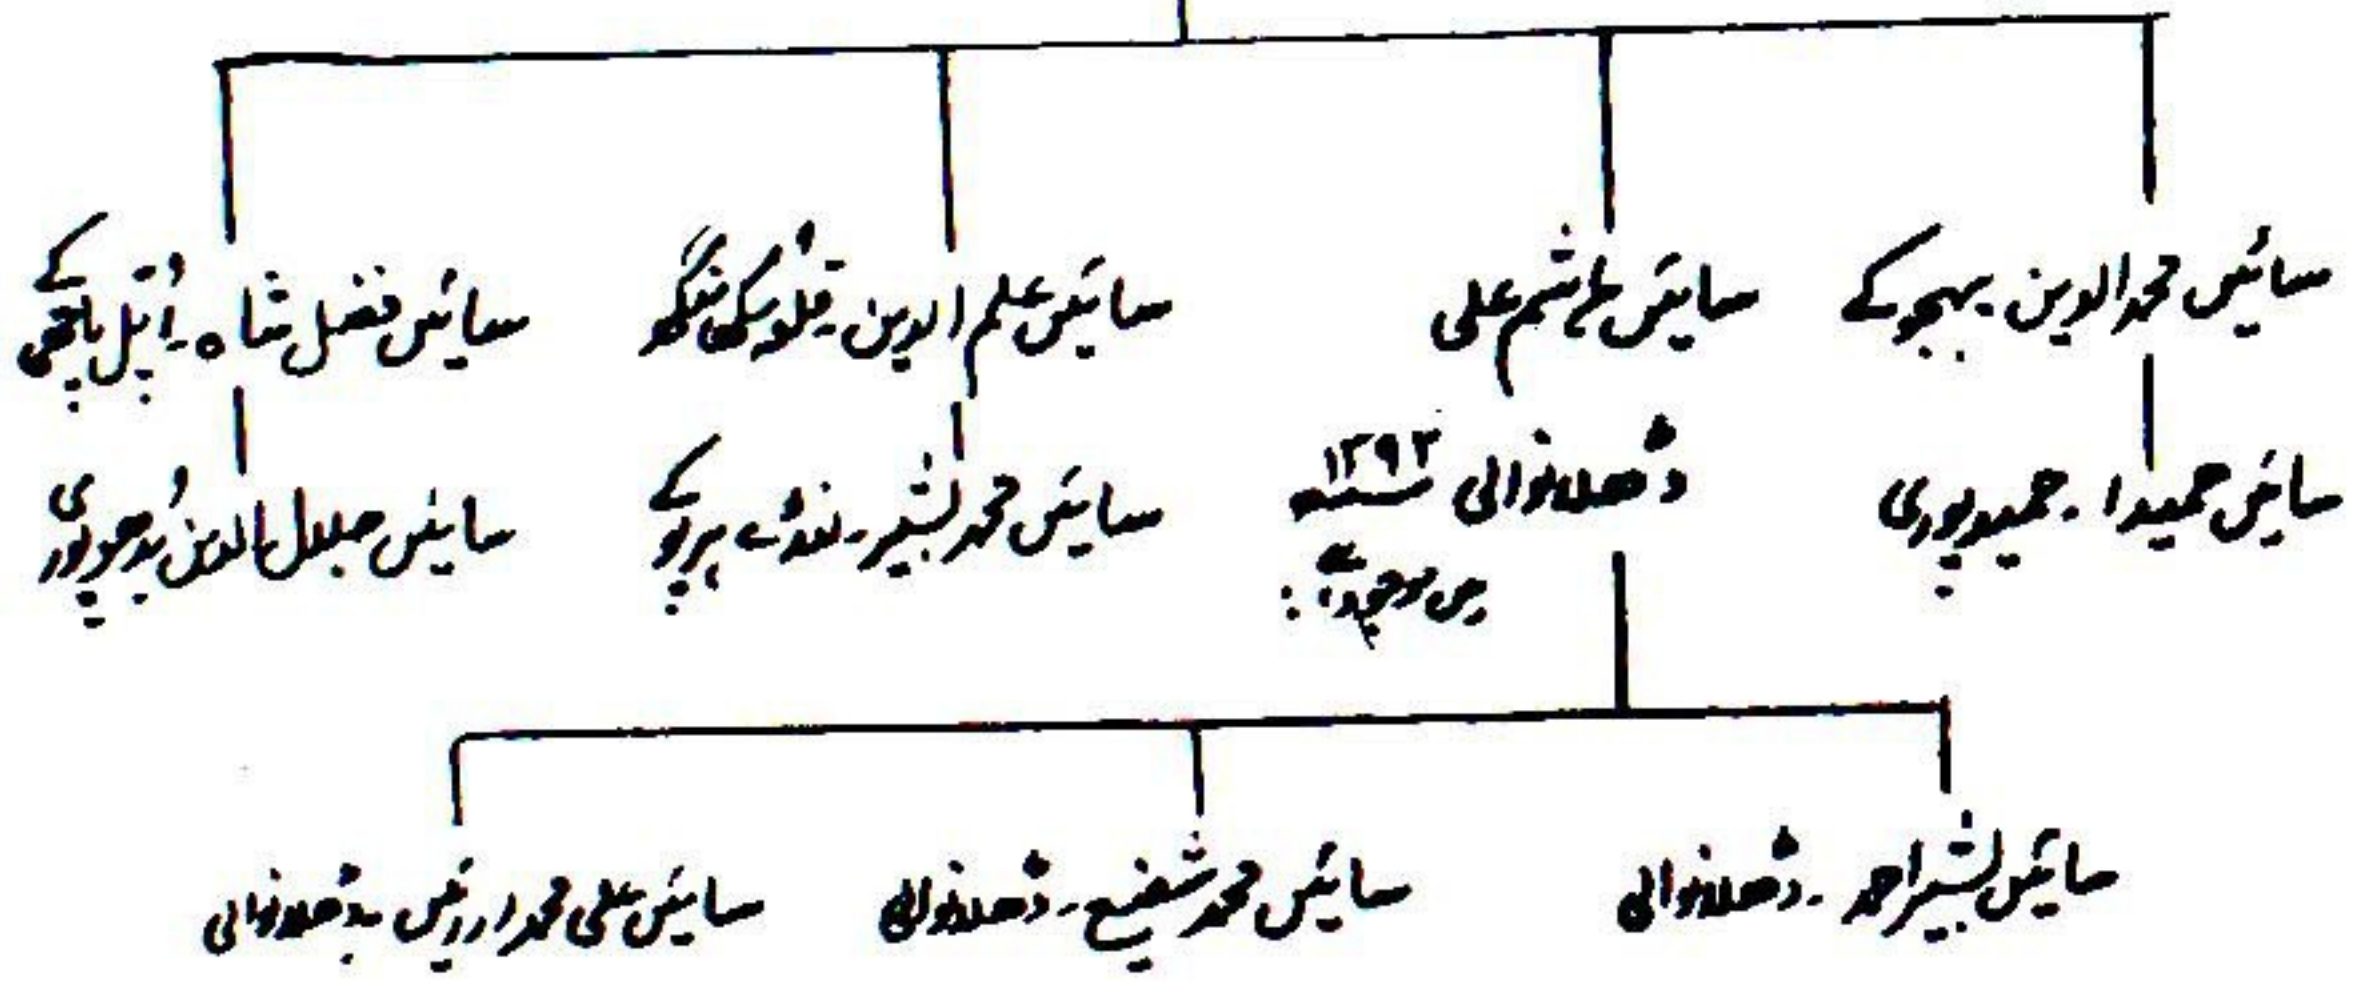 سائیں محمد الدین - بہجوکے
سائیں ہاشم علی
سائیں علم الدین - قلعہ سکھا سنگھ
سائیں فضل شاہ - اُپل
سائیں حمیدا - حمید پوری
ڈھلانوالی ۱۳۹۳
میں موجود ہے
سائیں محمد بشیر -
سائیں جلال الدین بُدھو پوری
سائیں بشیر احمد - ڈھلانوالی
سائیں محمد شفیع - ڈھلانوالی
سائیں علی محمد ارائیں - ڈھلانوالی